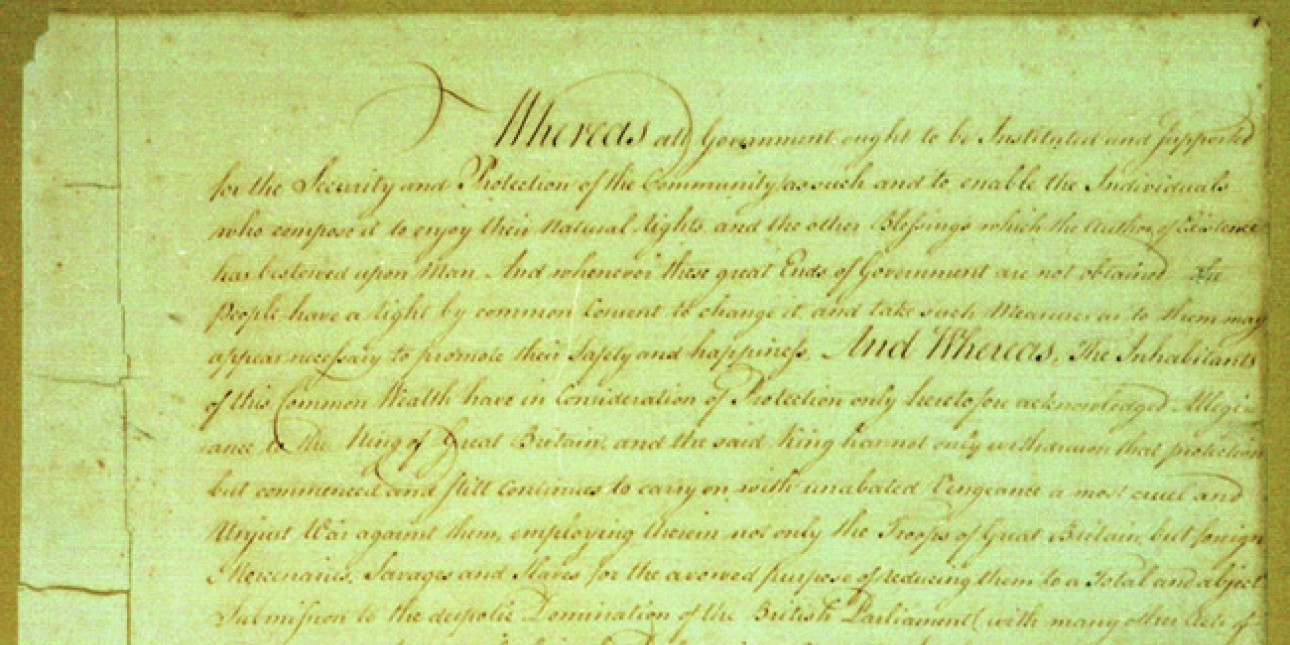 Whereas all Government ought to be Instituted and supported
for the Security and Protection of the Community as such and to enable the Individuals
who compose it to enjoy their Natural Rights, and the other Blessings which the Author of Existence
has bestowed upon Man. And whenever these great Ends of Government are not obtained the
People have a Right by common Consent to change it and take such Measures as to them may
appear necessary to promote their Safety and happiness. And Whereas, The Inhabitants
of this Common Wealth have in Consideration of Protection only heretofore acknowledged Allegi-
ance to the King of Great Britain, and the said King has not only withdrawn that protection
but commenced and still Continues to carry on with unabated Vengeance a most cruel and
Unjust War against them, employing therein not only the Troops of Great Britain, but foreign
Mercenaries, Savages and Slaves for the avowed purpose of reducing them to a Total and abject
Submission to the despotic Domination of the British Parliament (with many other Acts of